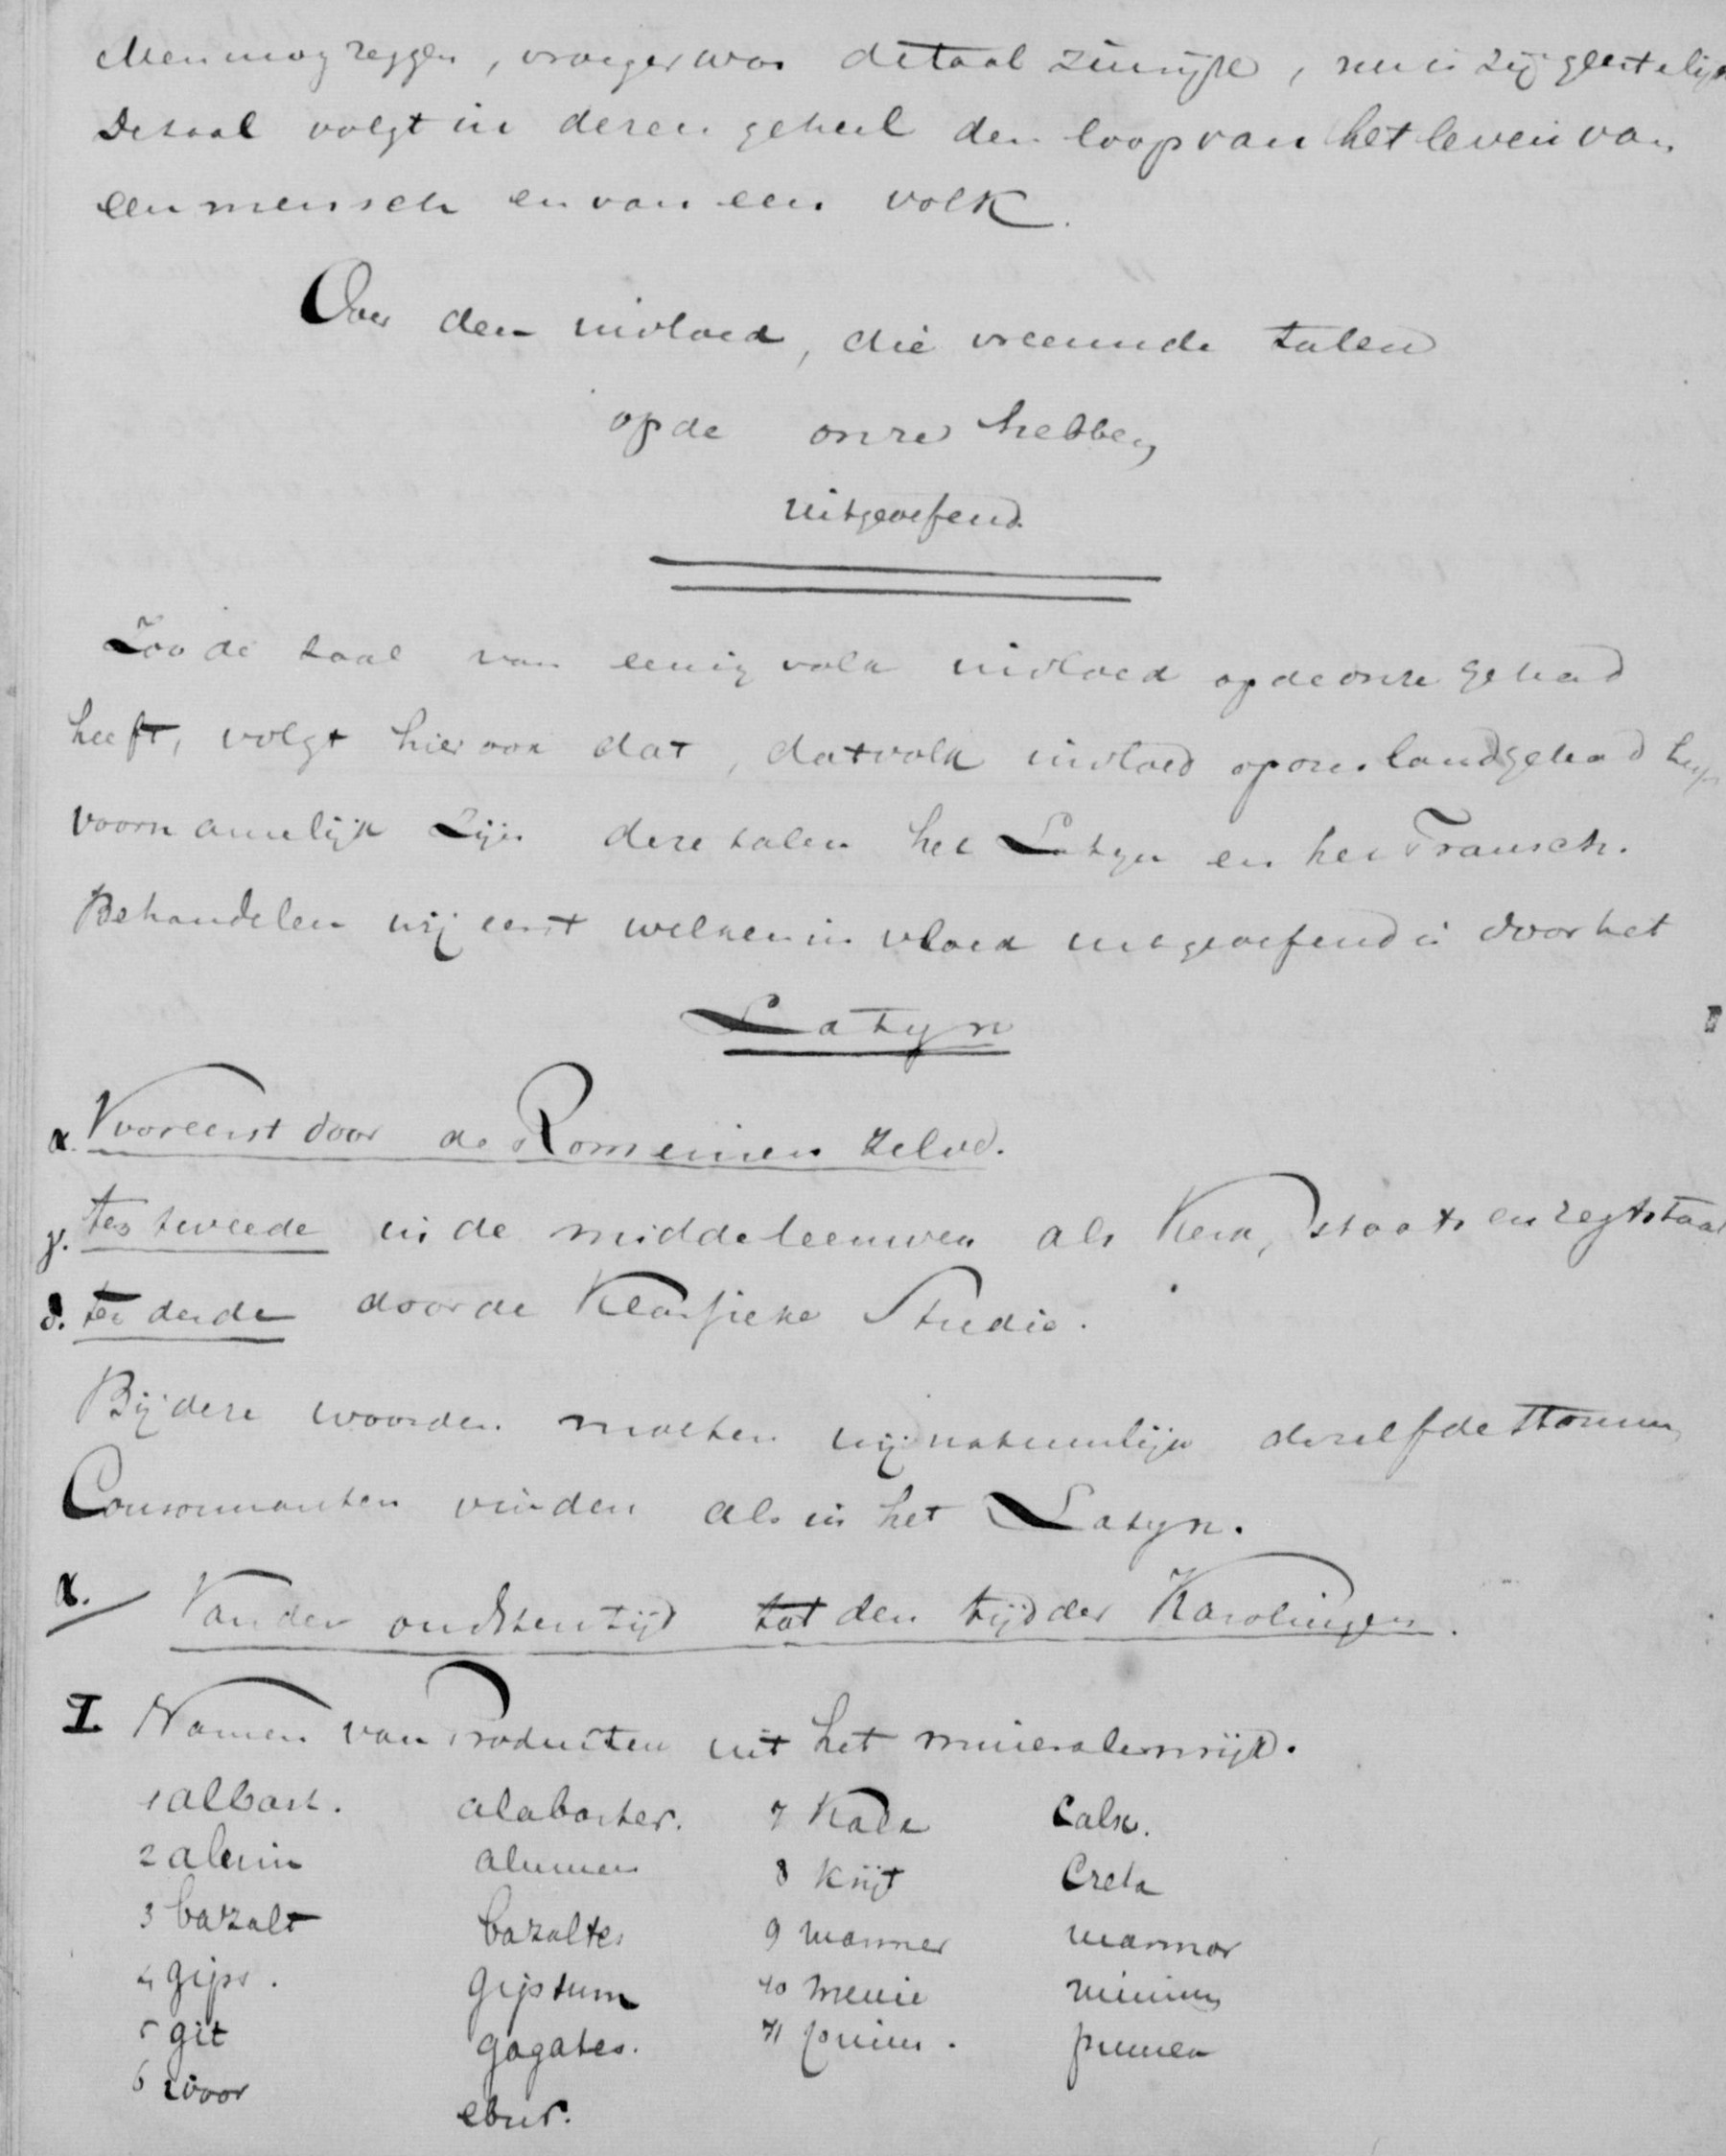 Men mag zeggen, vroeger was de taal zinnelijk, nu is zij geestelijk
De taal volgt in dezen geheel den loop van het leven van
een mensch en van een volk.
Over den invloed, die vreemde talen
op de onze hebben
uitgeoefend.
Zoo de taal van eenig volk invloed op de onze gehad
heeft, volgt hier van dat, dat volk invloed op ons land gehad heeft
voornamelijk zijn deze talen het Latyn en het Fransch.
Behandelen wij eerst welken invloed uitgeoefend is door het
Latyn
α. Vooreerst door de Romeinen zelve.
γ. ten tweede in de middeleeuwen als Kerk, staats en regtstaal
δ. ten derde door de Klassieke Studie.
Bij deze woorden moeten wij natuurlijk dezelfde stomme
Consonnanten vinden als in het Latyn.
α. Van den oudsten tijd tot den tijd der Karolingen.
I Namen van Producten uit het mineralenrijk.
1 albast. alabaster. 7 Kalk Calx.
2 aluin alumen 8 Krijt Creta
3 bazalt bazaltes 9 marmer marmor
4 gips. gipsum 10 menie minium
5 git gagates. 11 puim. pumex
6 ivoor ebur.